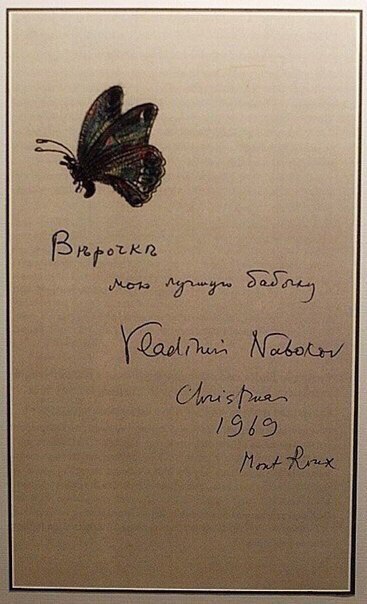 Вѣрочкѣ
мою лучшую бабочку
Vladimir Nabokov
Christmas
1969
Mont Roux